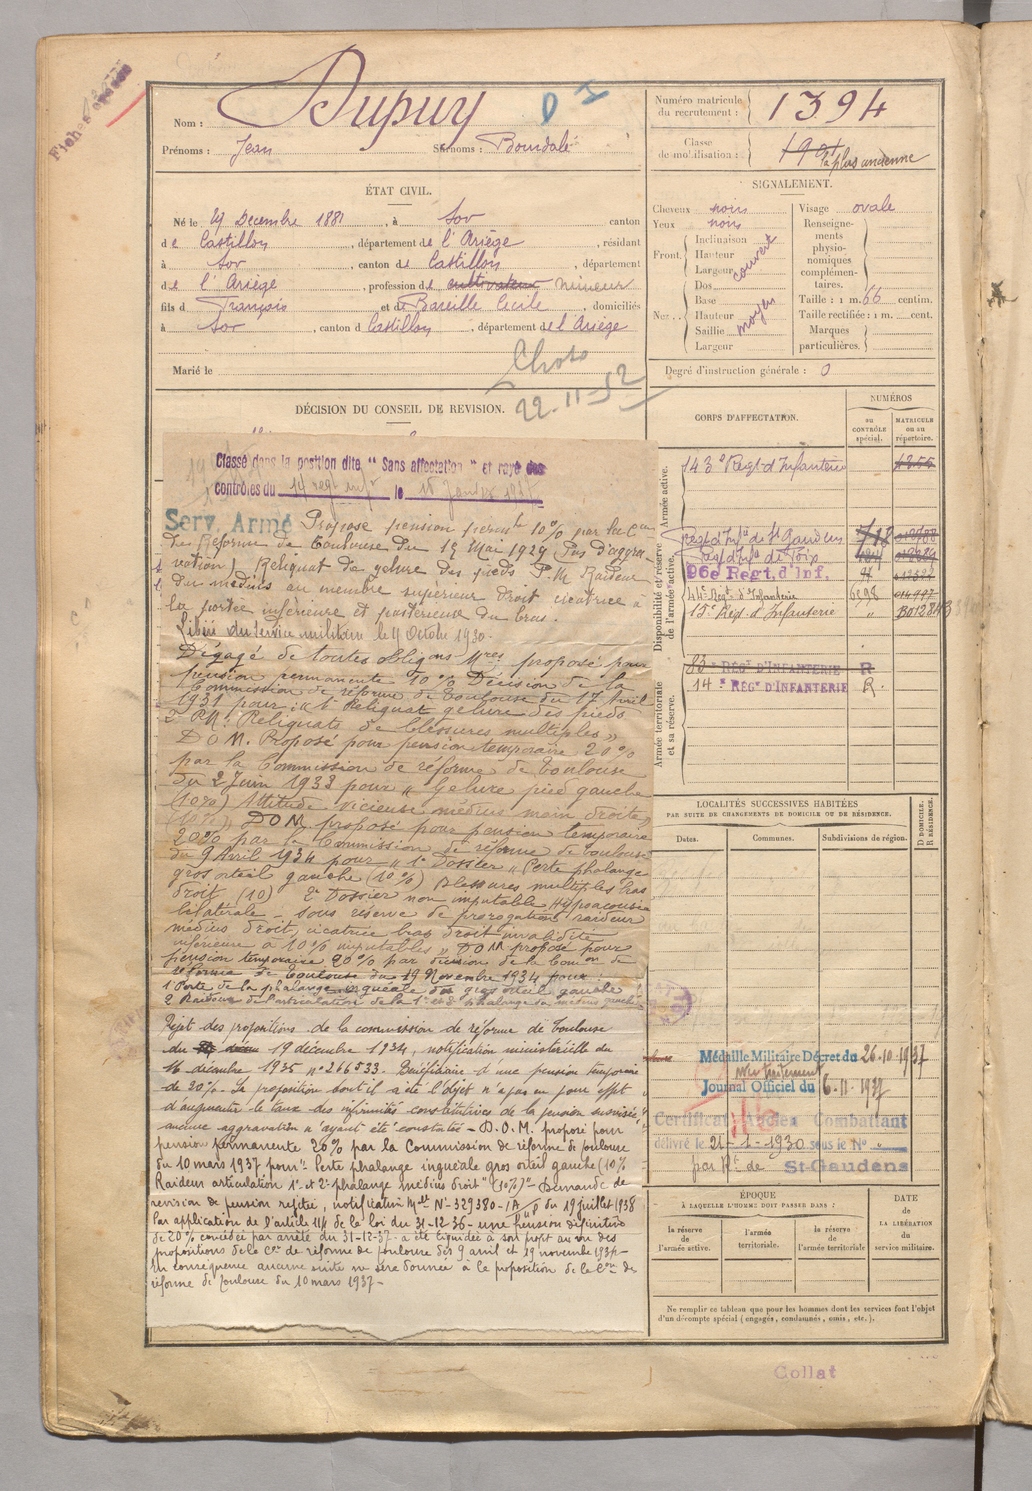 Fiches
Nom : Dupuy
Prénoms : Jean Surnoms : Bourdalé
Numéro matricule du recrutement : 1394
Classe de mobilisation : la plus ancienne
ÉTAT CIVIL.
Né le 29 Décembre 1881, à Sor canton
de Castillon, département de l'Ariège, résidant
à Sor, canton de Castillon, département
de l'Ariège, profession de cultivateur mineur
fils de François et de Bareille Cécile domiciliés
à Sor, canton d Castillon, département de l'Ariège
Marié le
22-11-52
SIGNALEMENT.
Cheveux noirs
Yeux noirs
Front. Inclinaison
Hauteur
Largeur
couvert
Nez. Dos
Base
Hauteur
Saillie
Largeur
moyen
Visage ovale
Renseignements physionomiques complémentaires.
Taille : 1 m. 66 centim.
Taille rectifiée : 1 m. cent.
Marques particulières.
Degré d'instruction générale : 0
DÉCISION DU CONSEIL DE REVISION.
Classé dans la position dite "Sans affectation" et rayé des
contrôles du 14e regt inf le 15 janvier 1927
Serv. Armé Proposé pension perm 10% par la Con
de Réforme de Toulouse du 15 Mai 1929 (Pas d'aggra-
vation) Reliquat de gelure des pieds P.M. Raideur
du médius au membre superieur droit cicatrice à
la partie inférieure et postérieure du bras.
Libéré du service militaire le 4 Octobre 1930.
Dégagé de toutes obligons Mres proposé pour
pension permanente 10% Décision de la
Commission de réforme de Toulouse du 17 Avril
1931 pour : "1° Reliquat gelure des pieds
2° P.M. Reliquats de blessures multiples"
D O M. Proposé pour pension temporaire 20%
par la Commission de réforme de Toulouse
du 2 Juin 1933 pour "Gelure pied gauche
(10%) Attitude vicieuse médius main droite,
(10%)" D O M proposé pour pension temporaire
20% par la Commission de réforme de Toulouse
du 9 Avril 1934 pour "1° Dossier" Perte phalange
gros orteil gauche (10%) Blessures multiples bras
droit, (10) 2° Dossier non imputable Hypoacousie
bilatérale - sous réserve de prorogation raideur
médius droit, cicatrice bras droit invalidité
inférieure à 10% imputables" D O M proposé pour
pension temporaire 20% par décision de la Comon de
réforme de Toulouse du 19 Novembre 1934 pour :
1 Perte de la phalange unguéale du gros orteil gauche
2 Raideur de l'articulation de la 1e et 2e phalange du médius gauche
Rejet des propositions de la commission de réforme de Toulouse
du 19 décembre 1934, notification ministérielle du
16 décembre 1935 n° 266533. Bénéficiaire d'une pension temporaire
de 20%. La proposition dont il a été l'objet n'a pas eu pour effet
d'augmenter le taux des infirmités constitutives de la pension susvisée,
aucune aggravation n'ayant été constatée - D.O.M. proposé pour
pension permanente 20% par la Commission de réforme de Toulouse
du 10 mars 1937 pour "Perte phalange ungueale gros orteil gauche (10%
Raideur articulation 1e et 2e phalange médius droit" (10%)" - Demande de
revision de pension rejetée, notification Mlle N° 329380-1A/P du 19 juillet 1938
Par application de l'article 114 de la loi du 31-12-36 - une pension définitive
de 20% concédée par arrêté du 31-12-37 a été liquidée à son profit au vu des
propositions de la Con de réforme de Toulouse des 9 avril et 19 novembre 1934 -
En conséquence aucune suite ne sera donnée à la proposition de la Con de
réforme de Toulouse du 10 mars 1937 -
CORPS D'AFFECTATION.
NUMÉROS
au CONTRÔLE spécial.
MATRICULE ou au répertoire.
Armée active.
143e Regt d'Infanterie 1255
Disponibilité et réserve de l'armée active.
Regt d'Infie de St Gaudens
Regt d'Infie de Foix
96e Regt. d'Inf.
44e Regt. d'Infanterie 6598
15e Rég. d'Infanterie " B012843
Armée territoriale et sa réserve.
83e RÉGt D'INFANTERIE R
14e RÉGt D'INFANTERIE R.
LOCALITÉS SUCCESSIVES HABITÉES
PAR SUITE DE CHANGEMENTS DE DOMICILE OU DE RÉSIDENCE.
Dates. Communes. Subdivisions de région.
D DOMICILE. R RÉSIDENCE.
Médaille Militaire Décret du 26-10-1937
Journal Officiel du 6-11-1937
Certificat Ancien Combattant
délivré le 21-1-1930 sous le N° "
par de St-Gaudens
ÉPOQUE
À LAQUELLE L'HOMME DOIT PASSER DANS :
la réserve de l'armée active.
l'armée territoriale.
la réserve de l'armée territoriale
DATE de LA LIBÉRATION du service militaire.
Ne remplir ce tableau que pour les hommes dont les services font l'objet
d'un décompte spécial (engagés, condamnés, omis, etc.).
Collat